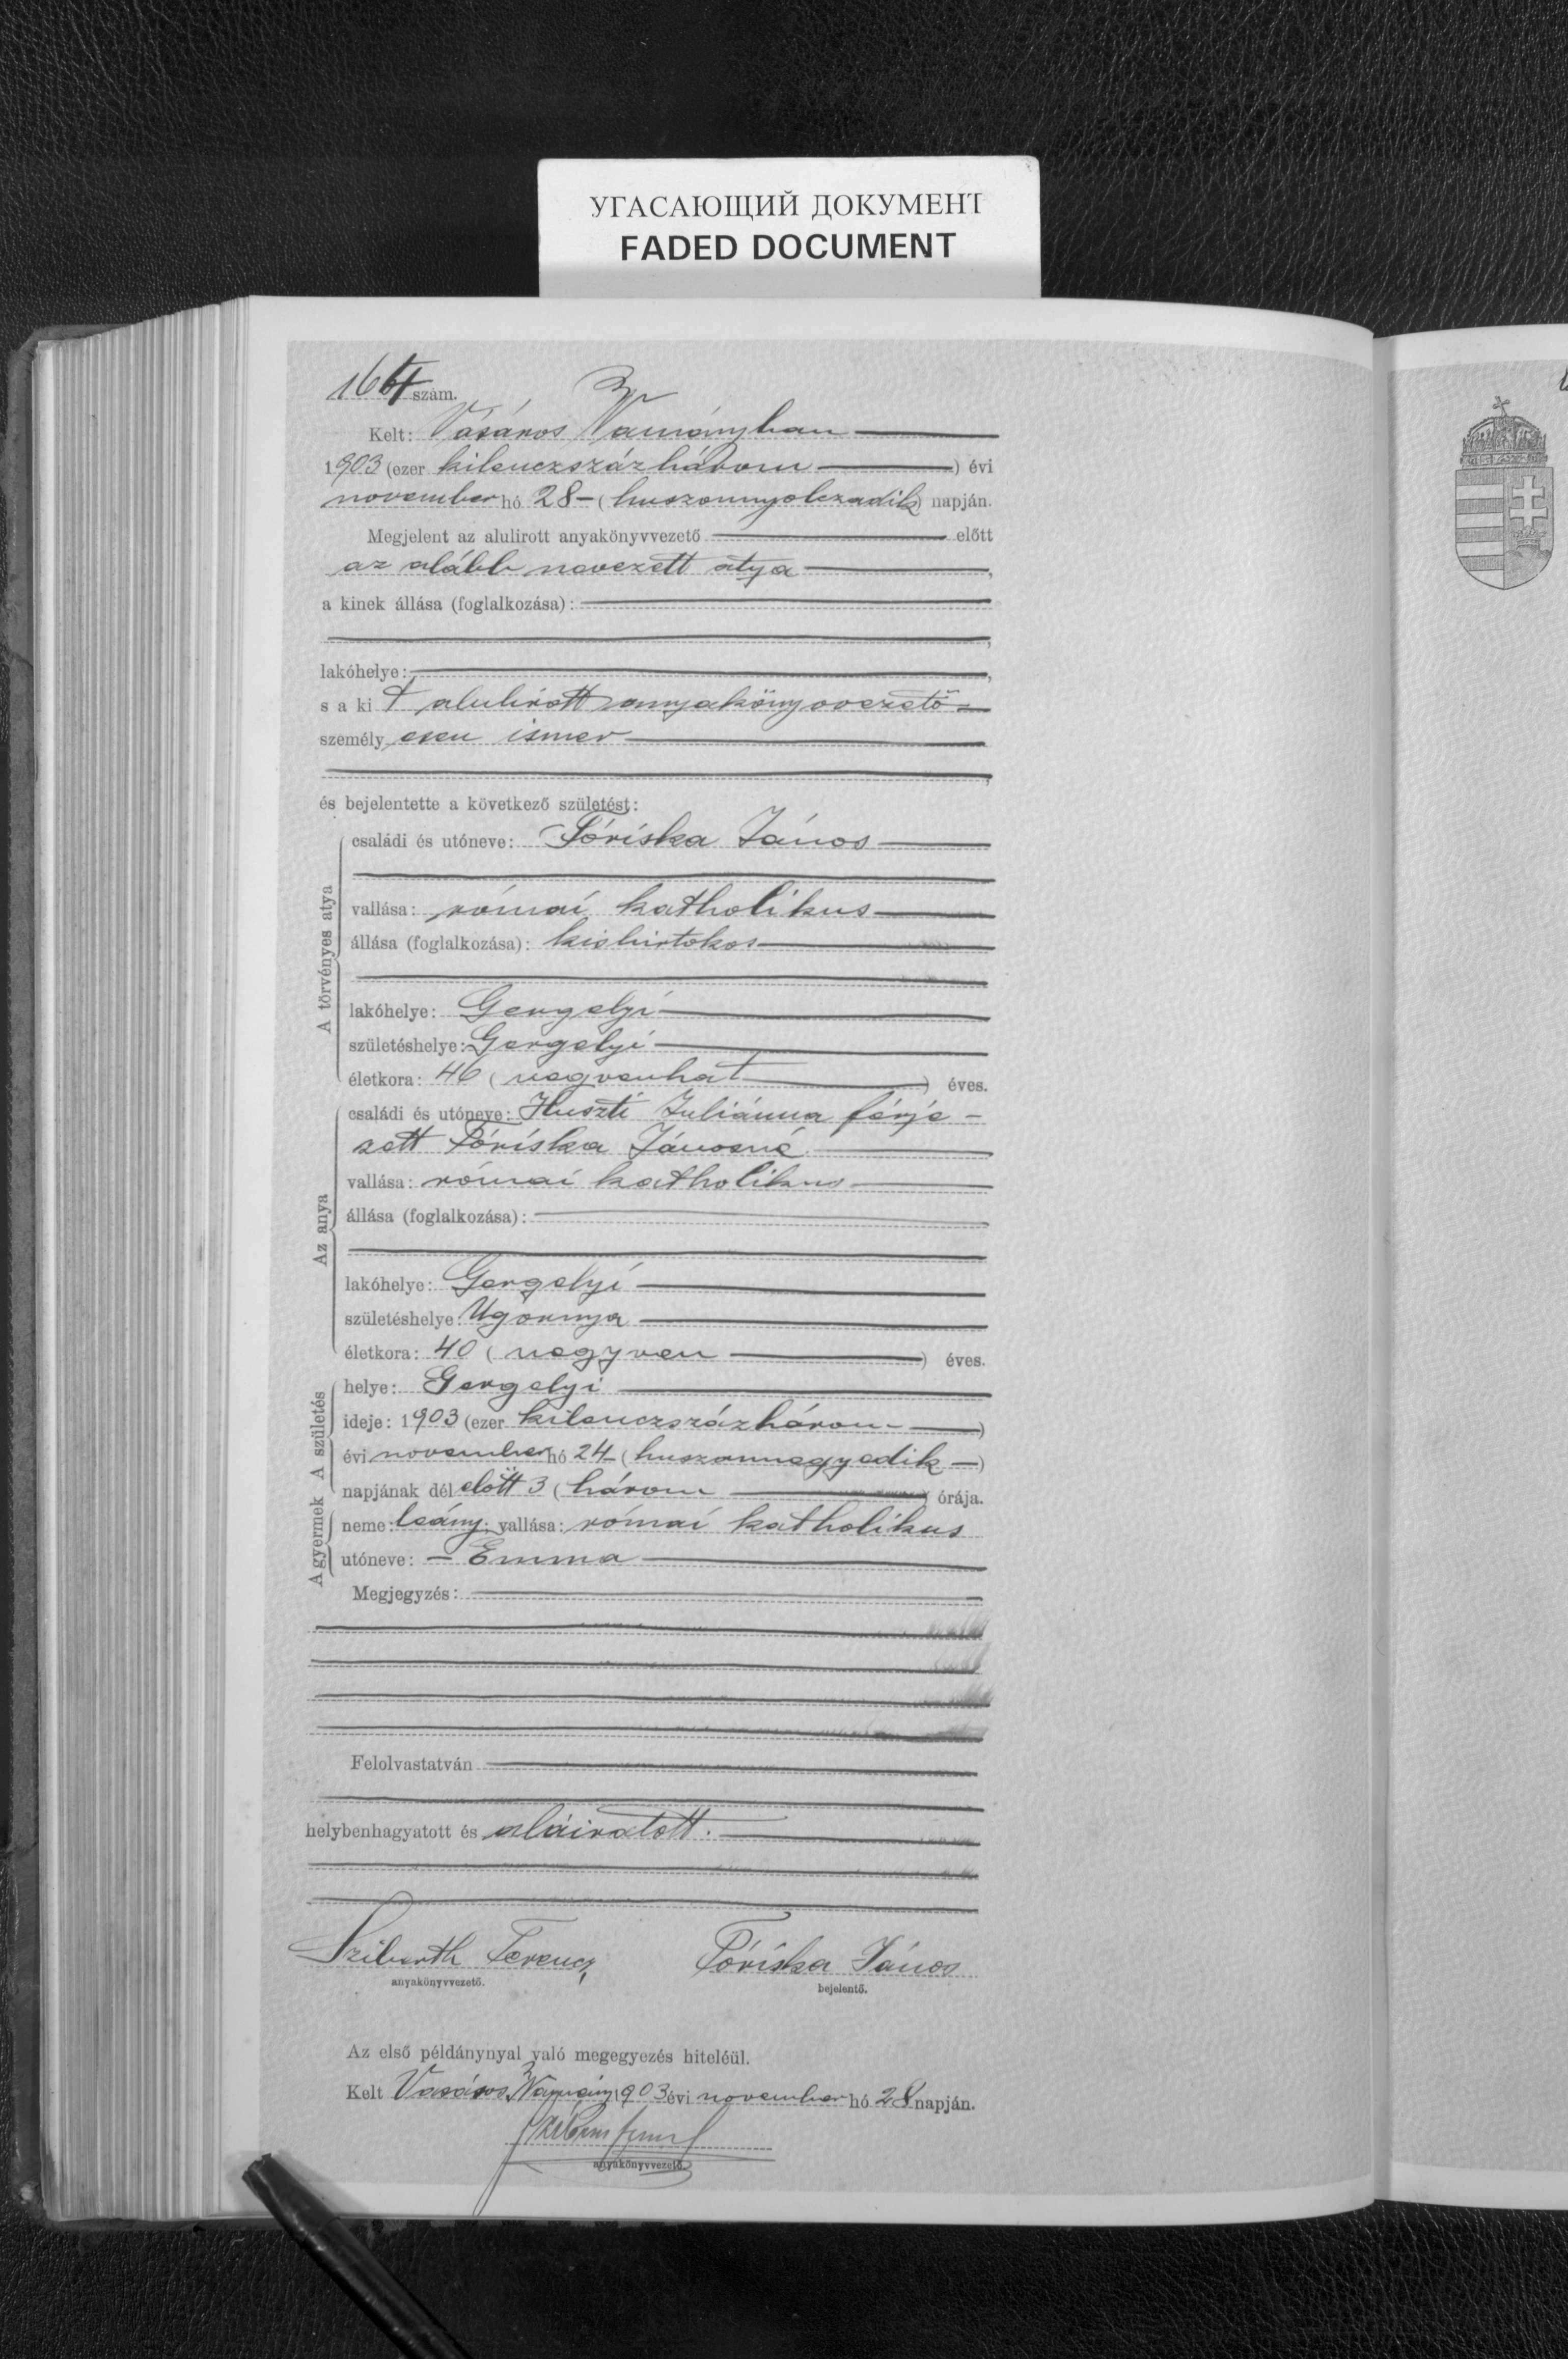 УГАСАЮЩИЙ ДОКУМЕНТ
FADED DOCUMENT
164 szám.
Kelt: Vásáros Naményban
1903 (ezer kilenczszázhárom) évi
november hó 28 - (huszonnyolczadik) napján.
Megjelent az alulirott anyakönyvvezető előtt
az alább nevezett atya,
a kinek állása (foglalkozása):
lakóhelye:
s a kit alulirott anyakönyvvezető
személyesen ismer
és bejelentette a következő születést:
A törvényes atya
családi és utóneve: Tóriska János
vallása: római katholikus
állása (foglalkozása): kisbirtokos
lakóhelye: Gergelyi
születéshelye: Gergelyi
életkora: 46 (negvenhat) éves.
Az anya
családi és utóneve: Huszti Juliánna férje-
zett Tóriska Jánosné
vallása: római katholikus
állása (foglalkozása):
lakóhelye: Gergelyi
születéshelye: Ugornya
életkora: 40 (negyven) éves.
A születés
helye: Gergelyi
ideje: 1903 (ezer kilenczszázhárom)
évi november hó 24 - (huszonnegyedik -)
napjának dél előtt 3 (három) órája.
A gyermek
neme: leány; vallása: római katholikus
utóneve: - Emma
Megjegyzés:
Felolvastatván
helybenhagyatott és aláiratott.
Ferencz Tóriska János
anyakönyvvezető. bejelentő.
Az első példánynyal való megegyezés hiteléül.
Kelt Vásáros Namény 1903 évi november hó 28 napján.
anyakönyvvezető.